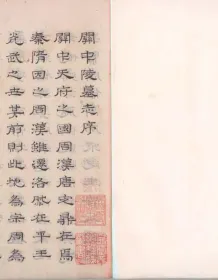 關中陵墓志序
關中天府之國周漢唐之鼎在焉
秦隋因之周漢雖遷洛然在平王
光武之世其前則此地為宗周為